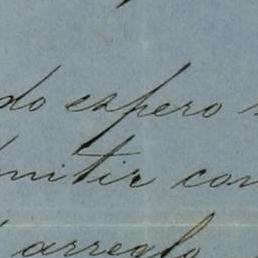 do espero
mitir con
arreglo